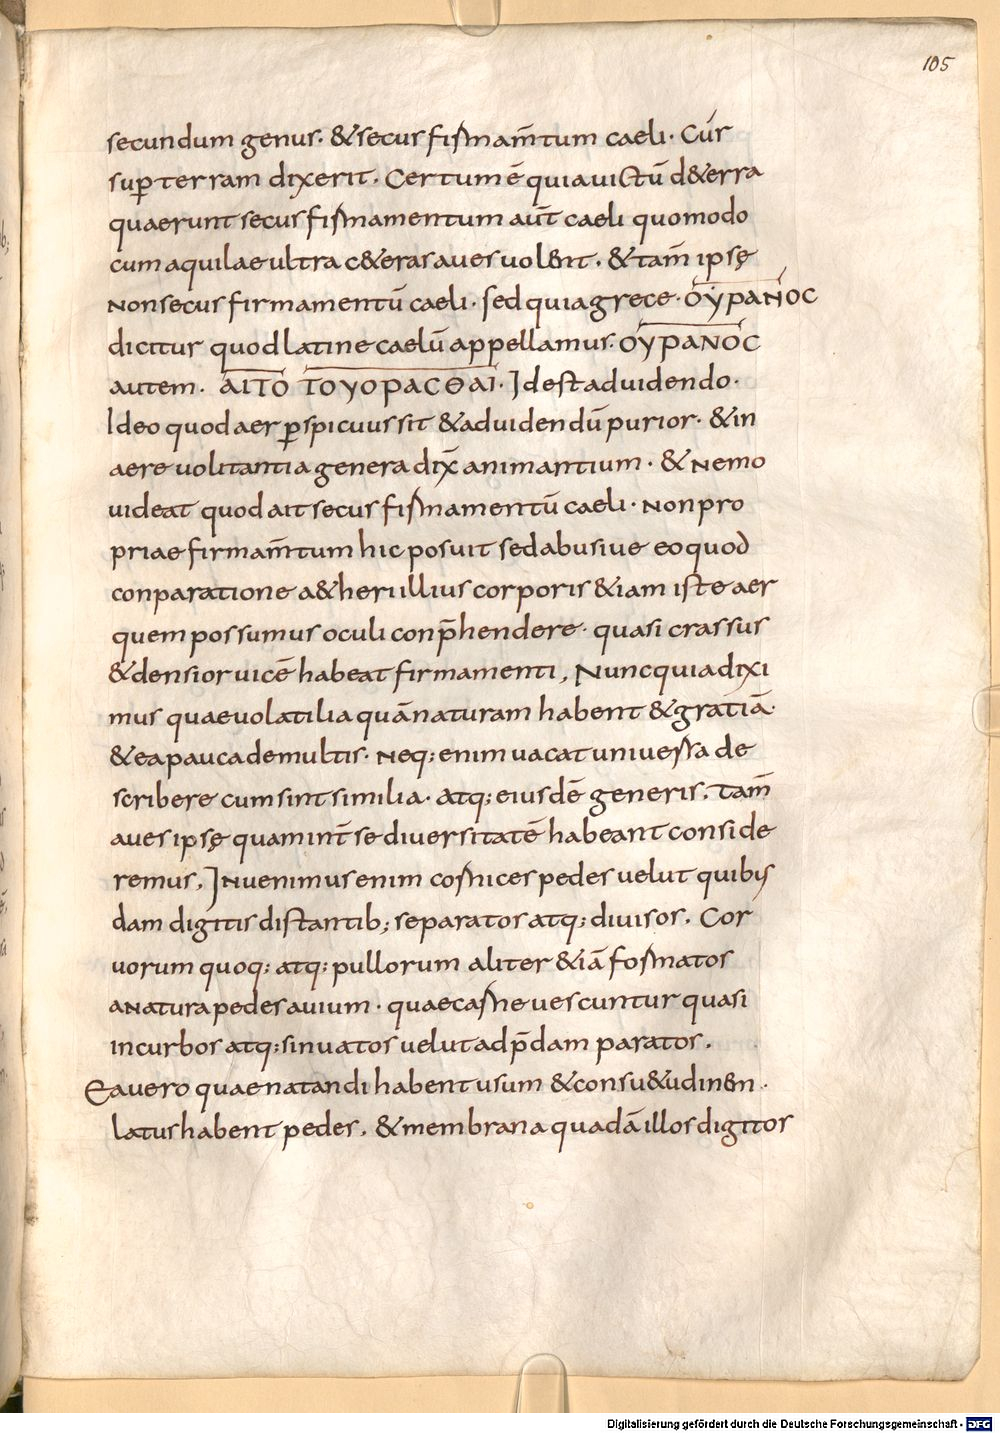 105
secundum genus. & secus firmam̄tum caeli. Cur
sup̱ terram dixerit. Certum ē quia uictū d&erra
quaerunt secus firmamentum aut̄ caeli quomodo
cum aquilae ultra c&eras aues uol&nt. & tam̄ ipsę
Non secus firmamentū caeli. sed quia grece. ΟΥΡΑΝΟC
dicitur quod latine caelū appellamus. ΟΥΡΑΝΟC
autem. ΑΙΤΟ ΤΟΥΟΡΑCΘΑΙ. Id est aduidendo.
Ideo quod aer p̱spicuus sit & aduidendū purior. & in
aere uolitantia genera dix̄ animantium. & Nemo
uideat quod ait secus firmamentū caeli. Non pro
priae firmam̄tum hic posuit sed abusiue eo quod
conparatione a&heri illius corporis &iam iste aer
quem possumus oculi conp̄hendere. quasi crassus
& densior uicē habeat firmamenti, Nunc quia dixi
mus quae uolatilia quā naturam habent & gratiā.
& ea pauca de multis. Neq; enim uacat uniuersa de
scribere cum sint similia. atq; eiusdē generis. tam̄
aues ipsę quam int̄ se diuersitatē habeant conside
remus, Inuenimus enim cornices pedes uelut quibus
dam digitis distantib; separatos atq; diuisos. Cor
uorum quoq; atq; pullorum aliter &iā formatos
a Natura pedes auium. quae carne uescuntur quasi
incurbos atq; sinuatos uelut ad p̄dam paratos.
Ea uero quae natandi habent usum & consu&udin&n.
latus habent pedes. & membrana quadā illos digitos
Digitalisierung gefördert durch die Deutsche Forschungsgemeinschaft - DFG